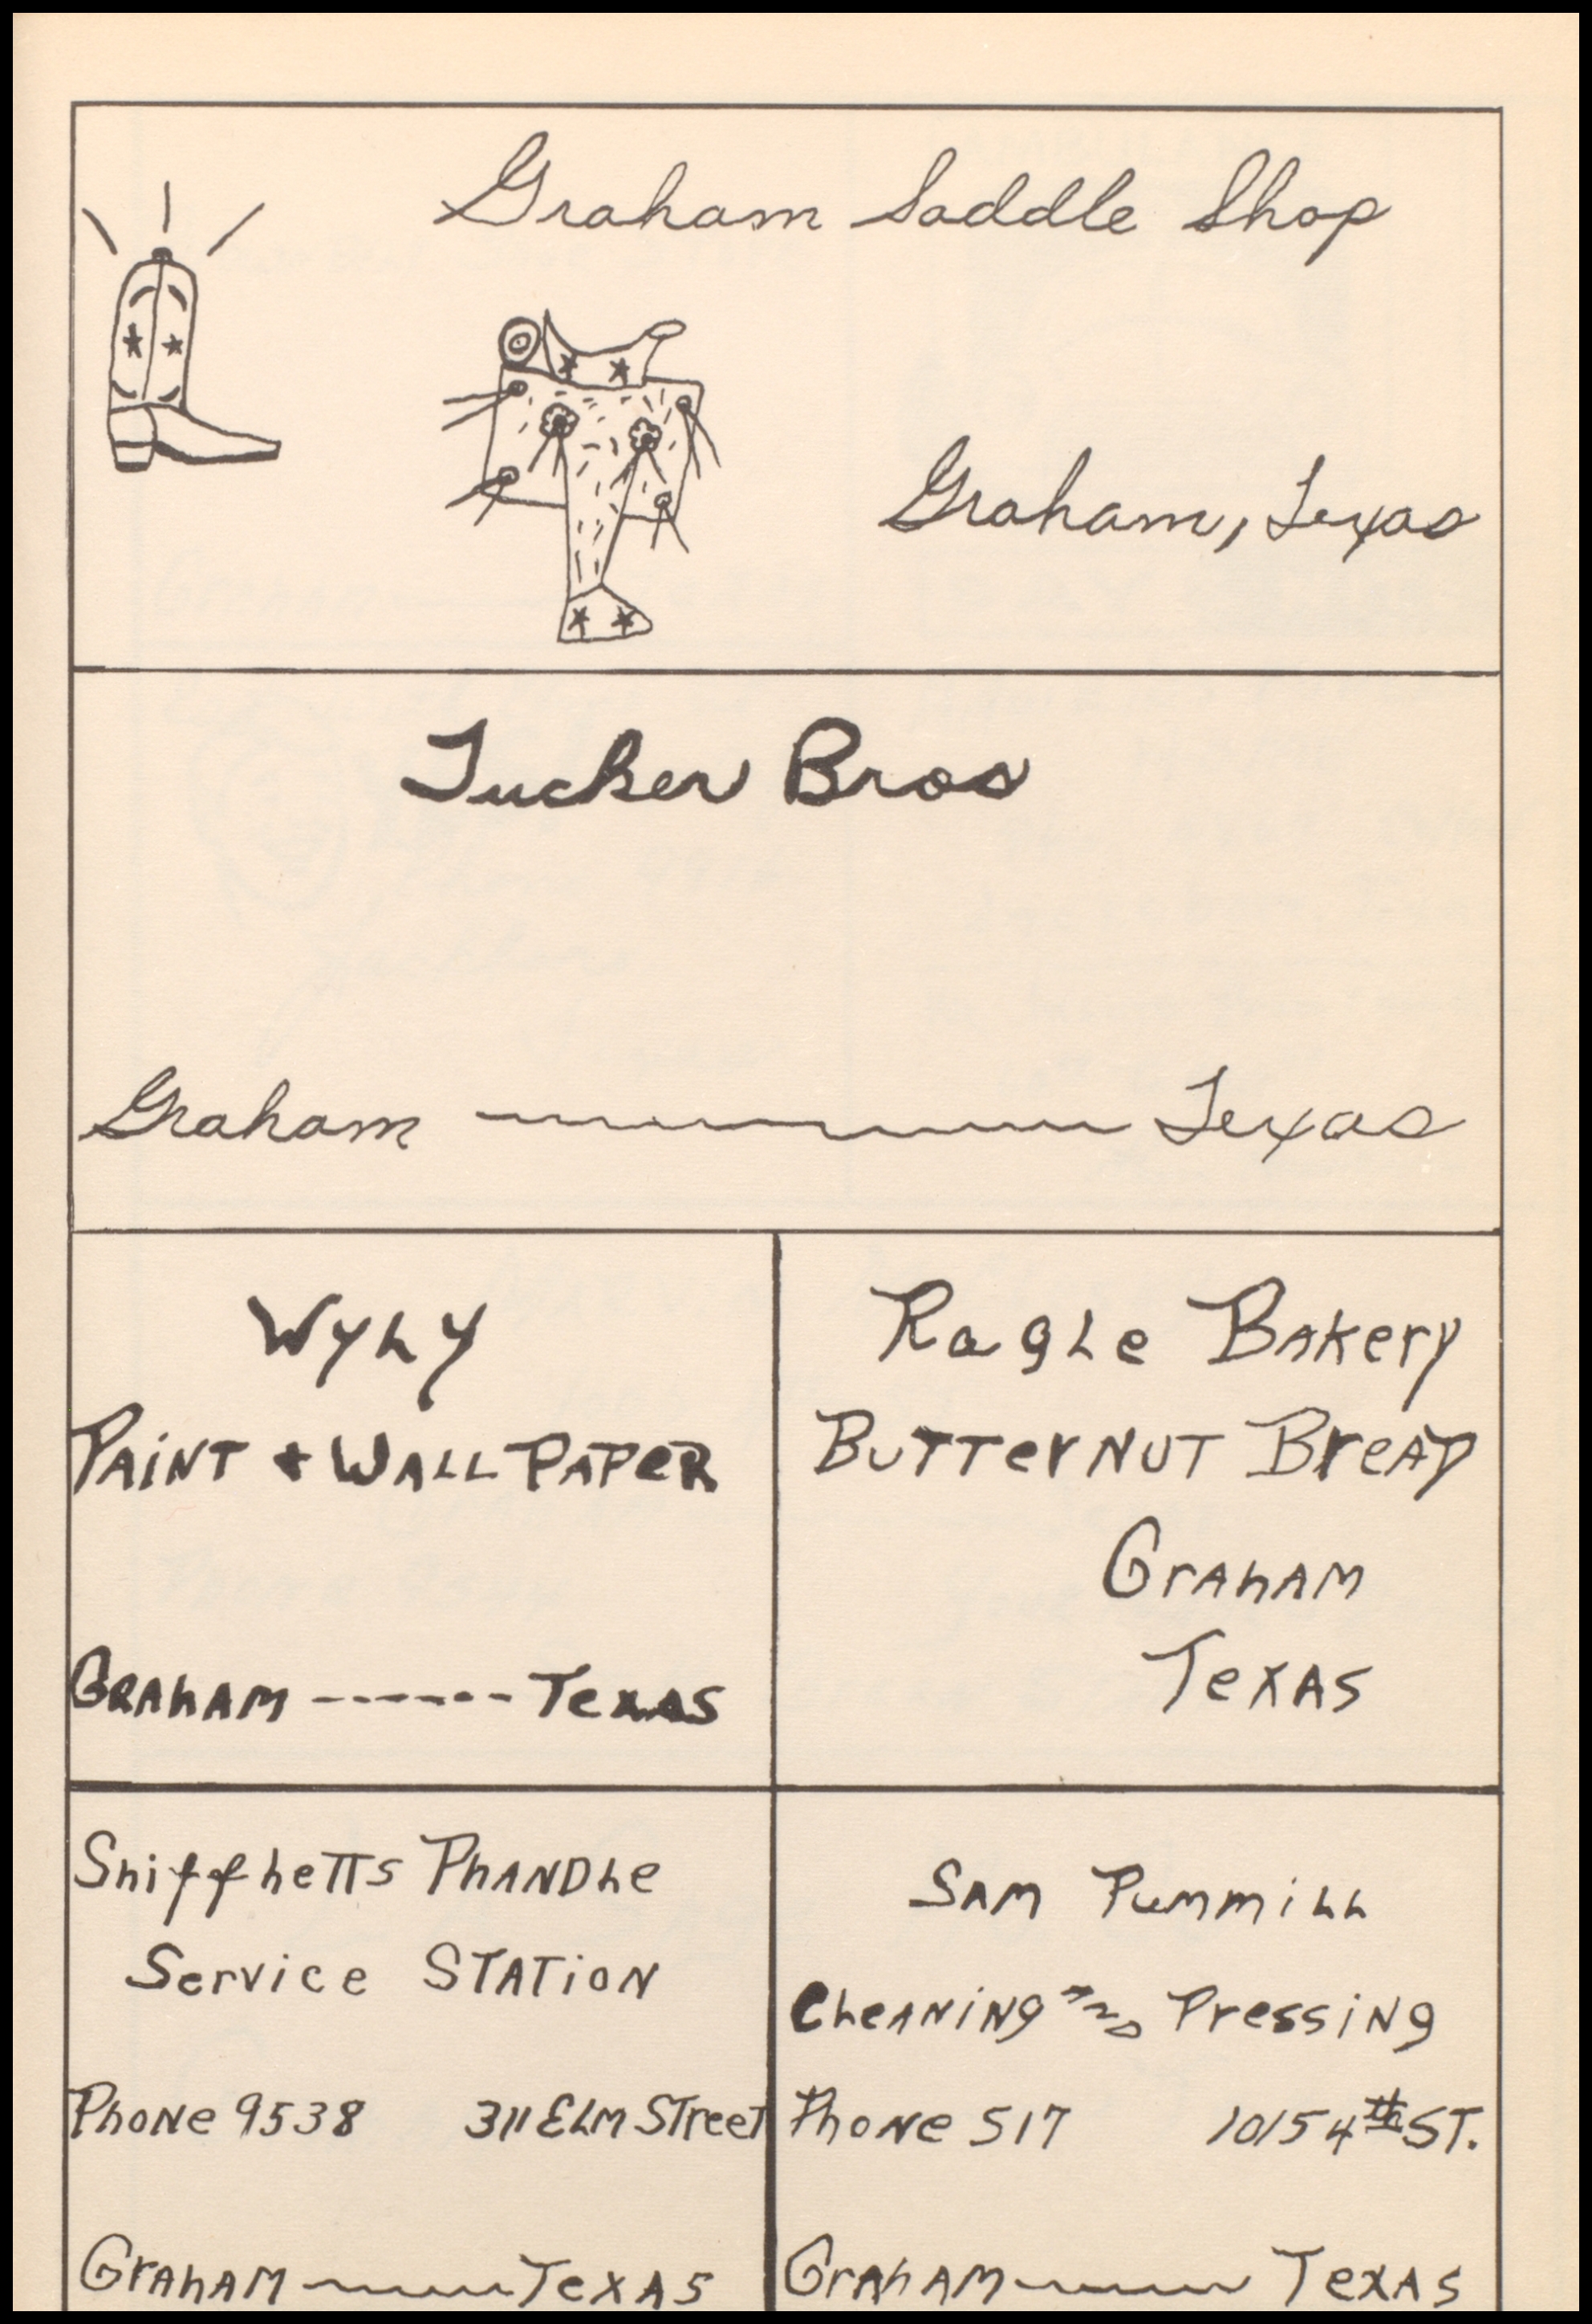 Graham Saddle Shop
Graham, Texas
Tucker Bros
Graham Texas
Wyly
Paint & Wall Paper
Graham ------ Texas
Ragle Bakery
Butternut Bread
Graham
Texas
Shiffletts Phandle
Service Station
Phone 9538 311 Elm Street
Graham Texas
Sam Pummill
Cleaning and Pressing
Phone 517 1015 4th St.
Graham Texas